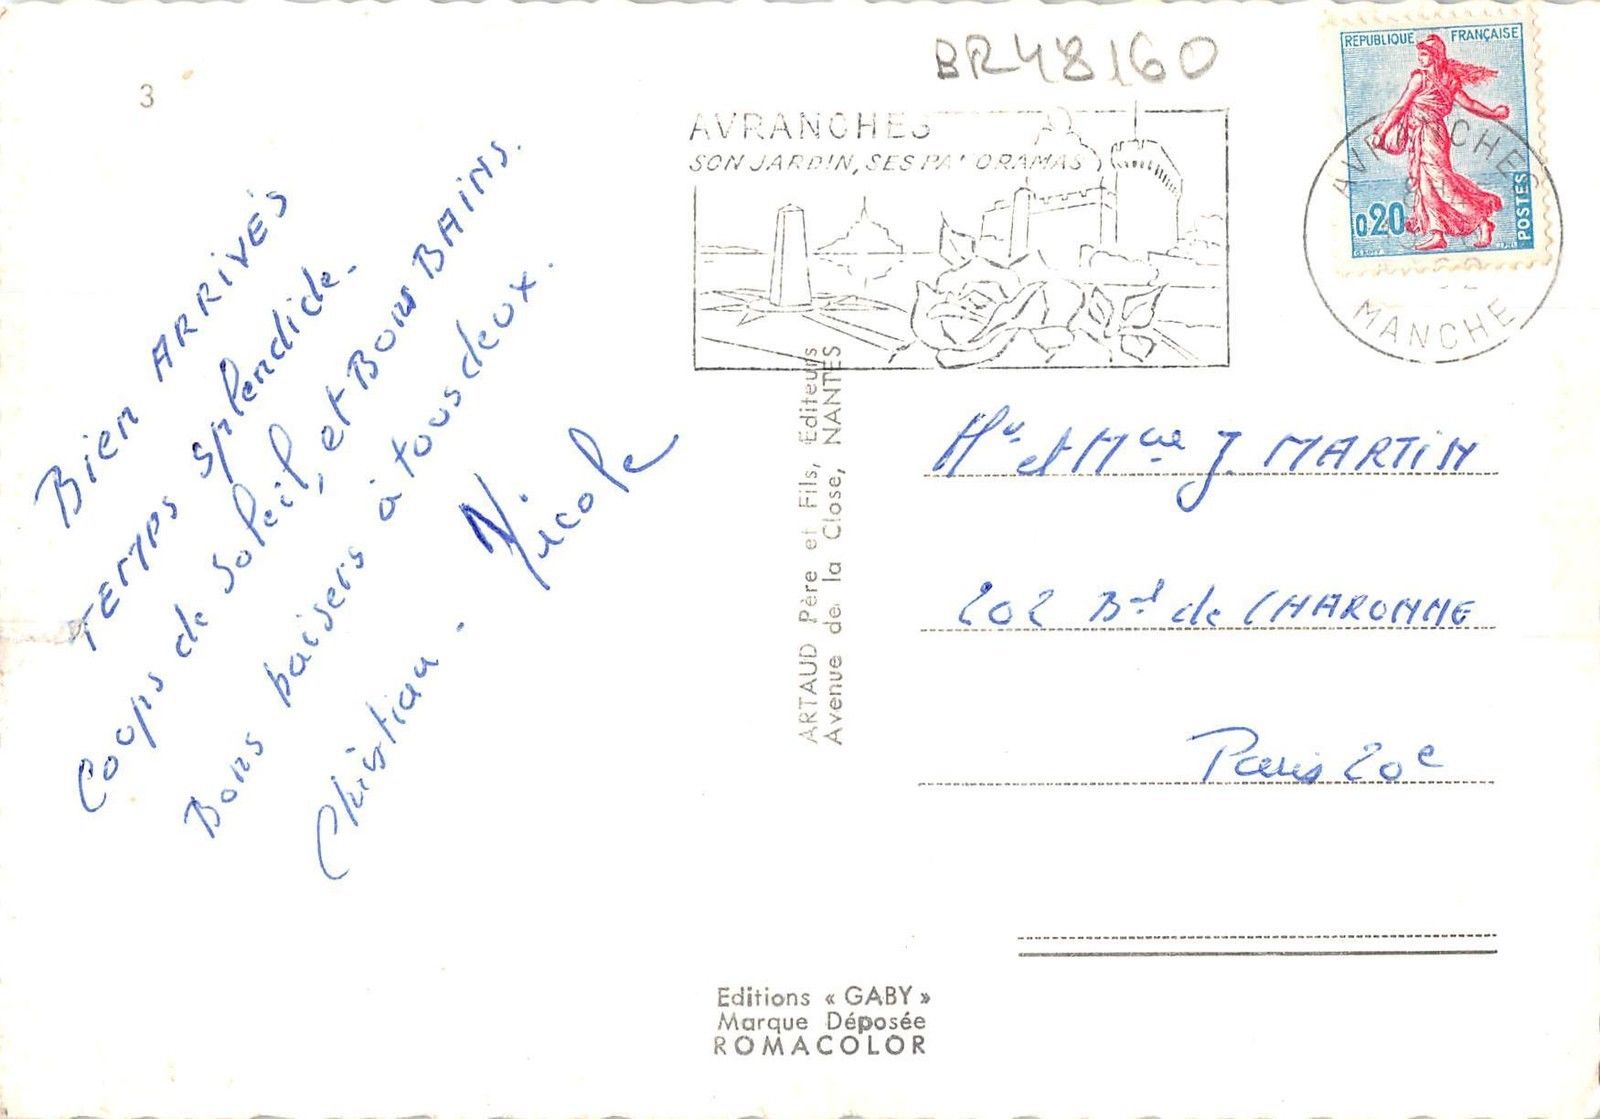 3
BR48160
AVRANCHES
SON JARDIN, SES PANORAMAS
REPUBLIQUE FRANÇAISE
0,20
POSTES
AVRANCHES
MANCHE
Bien ARRIVÉS
TEMPS Splendide.
Coups de Soleil, et Bons BAINS.
Bons baisers à tous deux.
Christian. Nicole
ARTAUD Père et Fils, Editeurs
Avenue de la Close, NANTES
Mr et Mme J. MARTIN
202 Bd de CHARONNE
Paris 20e
Editions « GABY »
Marque Déposée
ROMACOLOR